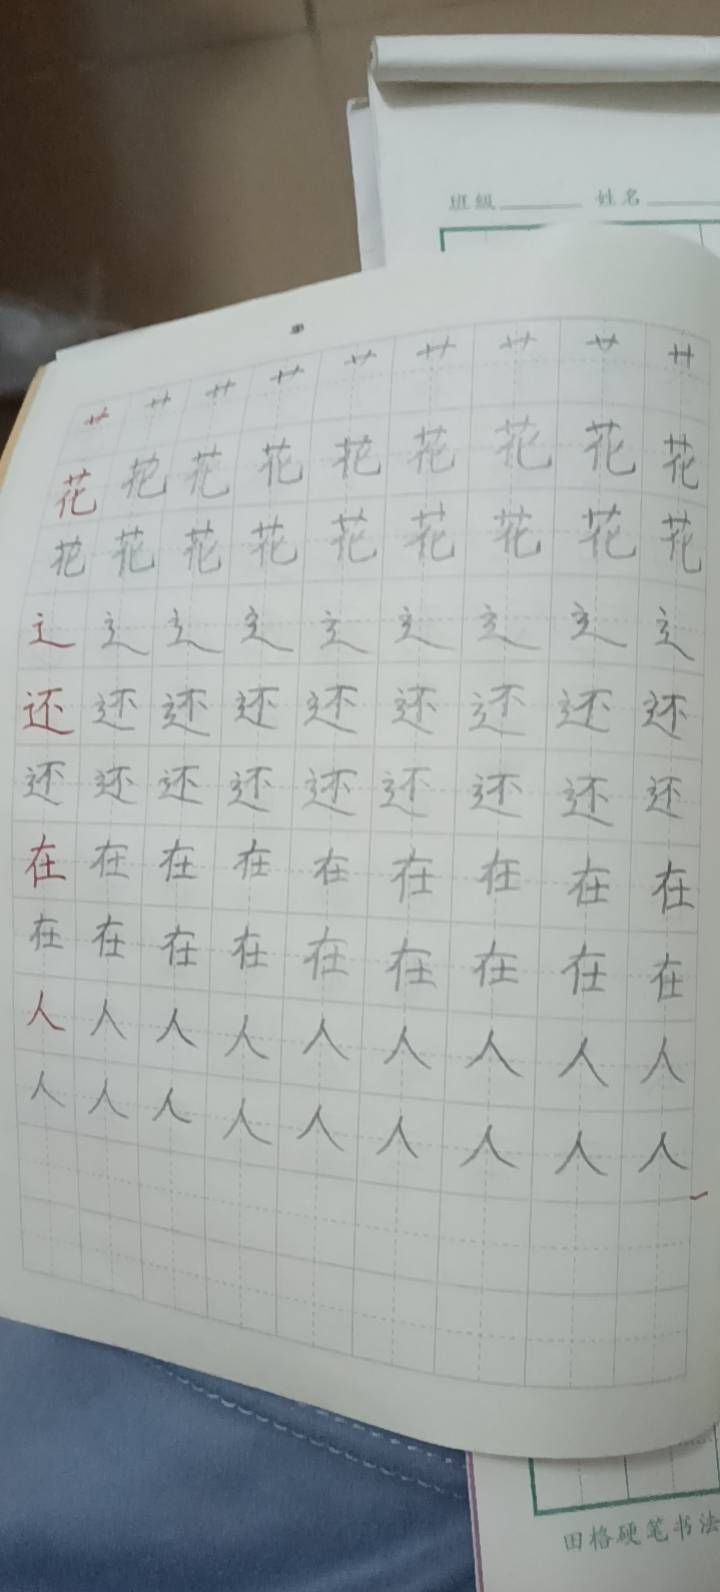 班级 姓名
艹 艹 艹 艹 艹 艹 艹 艹 艹
花 花 花 花 花 花 花 花 花
花 花 花 花 花 花 花 花 花
辶 辶 辶 辶 辶 辶 辶 辶 辶
还 还 还 还 还 还 还 还 还
还 还 还 还 还 还 还 还 还
在 在 在 在 在 在 在 在 在
在 在 在 在 在 在 在 在 在
人 人 人 人 人 人 人 人 人
人 人 人 人 人 人 人 人 人
田格硬笔书法